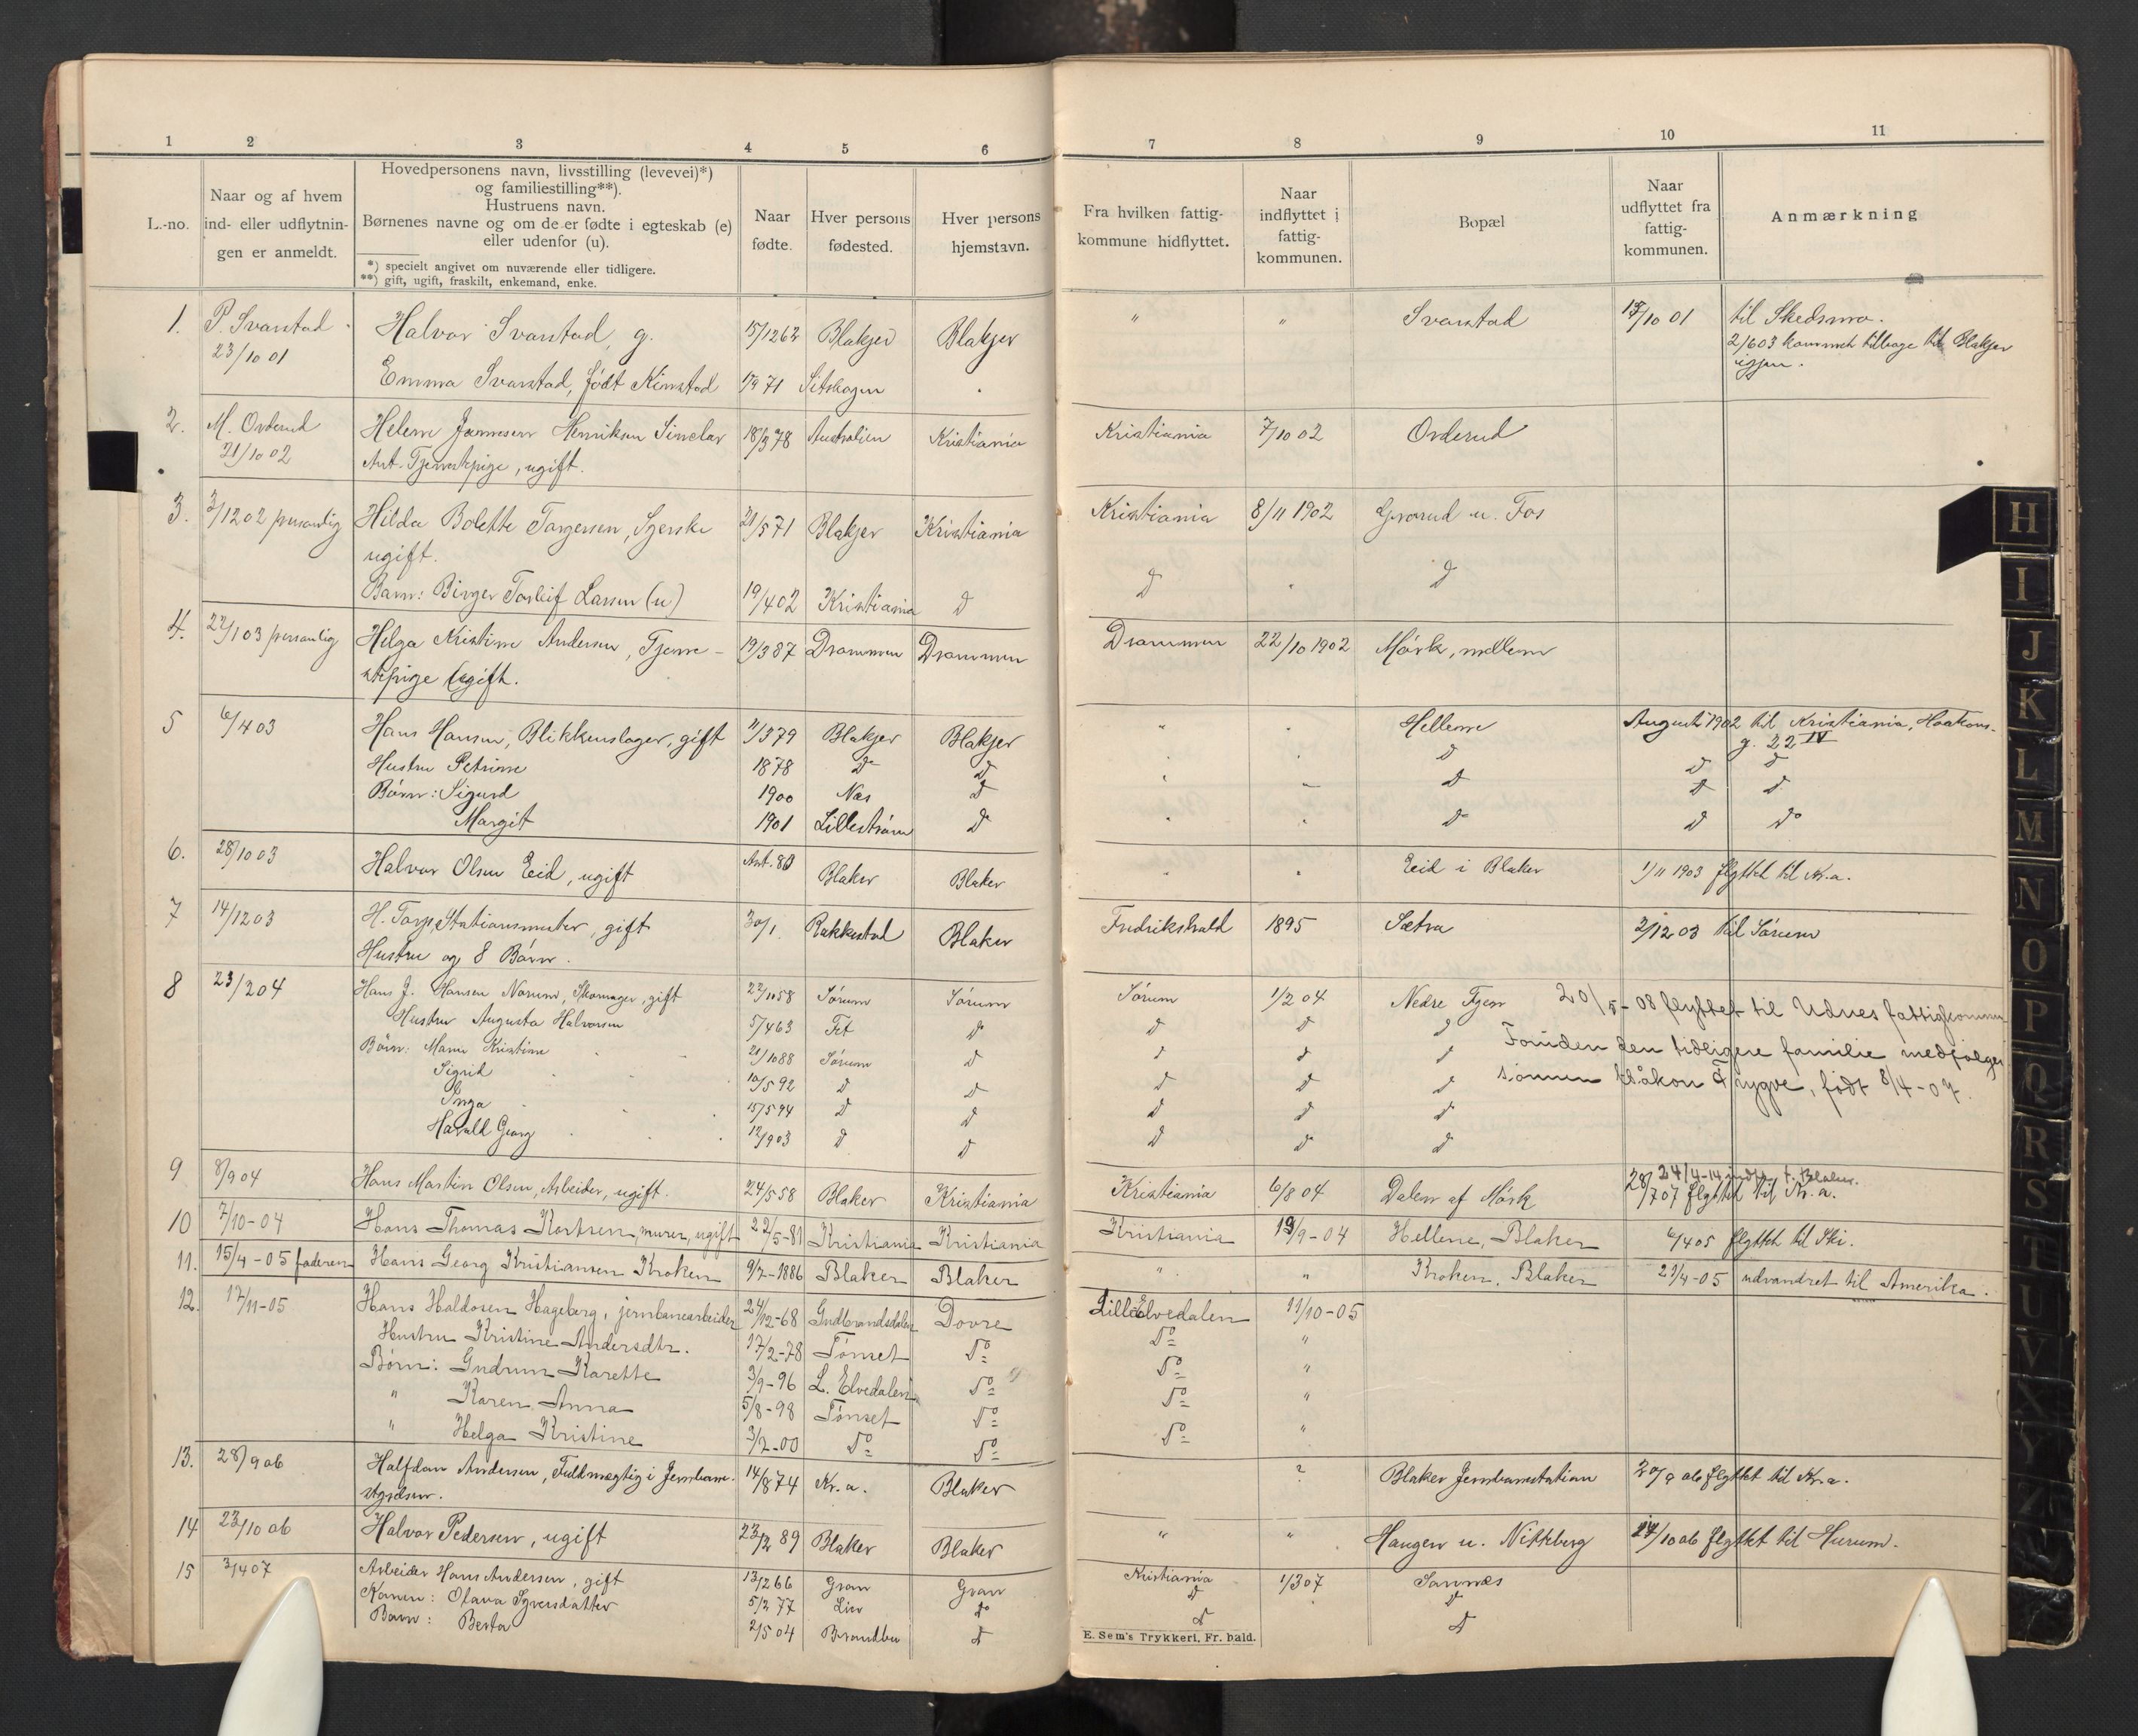 1 2 3 4 5 6 7 8 9 10 11
L.-no.
Naar og af hvem
ind- eller udflytnin-
gen er anmeldt.
Hovedpersonens navn, livsstilling (levevei)*)
og familiestilling**).
Hustruens navn.
Børnenes navne og om de er fødte i egteskab (e)
eller udenfor (u).
*) specielt angivet om nuværende eller tidligere.
**) gift, ugift, fraskilt, enkemand, enke.
Naar
fødte.
Hver persons
fødested.
Hver persons
hjemstavn.
Fra hvilken fattig-
kommune hidflyttet.
Naar
indflyttet i
fattig-
kommunen.
Bopæl
Naar
udflyttet fra
fattig-
kommunen.
Anmærkning
1. P. Svarstad Halvor Svarstad, g. 15/12 62 Blakjer Blakjer " " Svarstad /10 01 til Skedsmo.
23/10 01 2/6 03 kommet tilbage til Blakjer
igjen.
Emma Svarstad, født 71
2. M. Orderud Helene Henriksen Sinclar 18/3 78 Australien Kristiania Kristiania 7/10 02 Orderud
21/10 02 Ant. Tjenestepige, ugift.
3. 3/12 02 personlig Hilda Bolette Torgersen, Syerske 21/5 71 Blakjer Kristiania Kristiania 8/11 1902 u. Fos
ugift.
Barn: Birger Torleif Larsen (u) 19/4 02 Kristiania D D D
4. 22/1 03 personlig Helga Kristine Andersen, Tjene- 19/3 87 Drammen Drammen Drammen 22/10 1902 Mørk, mellem
stepige ugift.
5 6/4 03 Hans Hansen, Blikkenslager, gift 11/3 79 Blakjer Blakjer " " Hellene August 1902 til Kristiania, Haakons-
g. 22 IV
Hustru Petrine 1878 D D D D D
Børn: Sigurd 1900 Nes D D D D
Margit 1901 Lillestrøm D D D Do
6. 28/10 03 Halvor Olsen Eid, ugift Ant. Blaker Blaker " " Eid i Blaker 1/11 1903 flyttet til Kr.a.
7 14/12 03 H. Torp, Stationsmester, gift 30/1 Rakkestad Blaker Fredrikshald 1895 Sætra 2/12 03 til Sørum
Hustru og 8 Børn.
8 23/2 04 Hans J. Hansen Norum, Skomager, gift 22/10 58 Sørum Sørum Sørum 1/2 04 Nedre 20/5-08 flyttet til Udnes fattigkommu
Hustru Augusta Halvorsen 5/4 63 Fet D D D D
Foruden den tidligere familie medfølger
Børn: Marie Kristine 21/10 88 Sørum D D D D
sønnen Håkon Trygve, født 8/4-07.
Sigrid 10/5 92 D D D D D
Inga 15/5 94 D D D D D
Harald Georg 12/9 03 D D D D D
9 8/9 04 Hans Martin Olsen, Arbeider, ugift. 24/5 58 Blaker Kristiania Kristiania 6/8 04 Dalen af Mørk 28/7 07 flyttet til Kr.a.
24/4-14 indfl. f. Blaker.
10 7/10-04 Hans Thomas murer, ugift 22/5-81 Kristiania Kristiania Kristiania 19/9-04 Hellene, Blaker 6/4 05 flyttet til Ski.
11. 15/4-05 faderen Hans Georg Kristiansen Kroken 9/7-1886 Blaker Blaker " " Kroken, Blaker 21/4-05 udvandret til Amerika.
12. 17/11-05 Hans Haldosen Hageberg, jernbanearbeider 24/12-68 Gudbrandsdalen Dovre Lilleelvedalen 11/10-05
Hustru Kristine Andersdtr. 17/2-78 Tønset Do Do "
Børn: Gudrun Karette 3/9-96 L. Elvedalen Do Do "
" Karen Anna 5/8-98 Tønset Do Do "
" Helga Kristine 3/2-00 Do Do Do "
13. 28/9 06 Halfdan Andersen, Fuldmægtig i Jernbane- 14/8 74 Kr.a. Blaker " ? Blaker Jernbanestation 20/9 06 flyttet til Kr.a.
styrelsen.
14 23/10 06 Halvor Pedersen, ugift 23/2 89 Blaker Blaker " " Haugen u. Nikkeberg /10 06 flyttet til Hurum.
15 3/4 07 Arbeider Hans Andersen, gift 13/2 66 Gran Gran Kristiania 1/3 07 Sannes
Konen: Olava Syversdatter 5/2 77 Lier do D D
Barn: Berta 2/5 04 Brandbu D D D
E. Sem's Trykkeri, Fr.hald.
H
I
J
K
L
M
N
O
P
Q
R
S
T
U
V
X
Y
Z